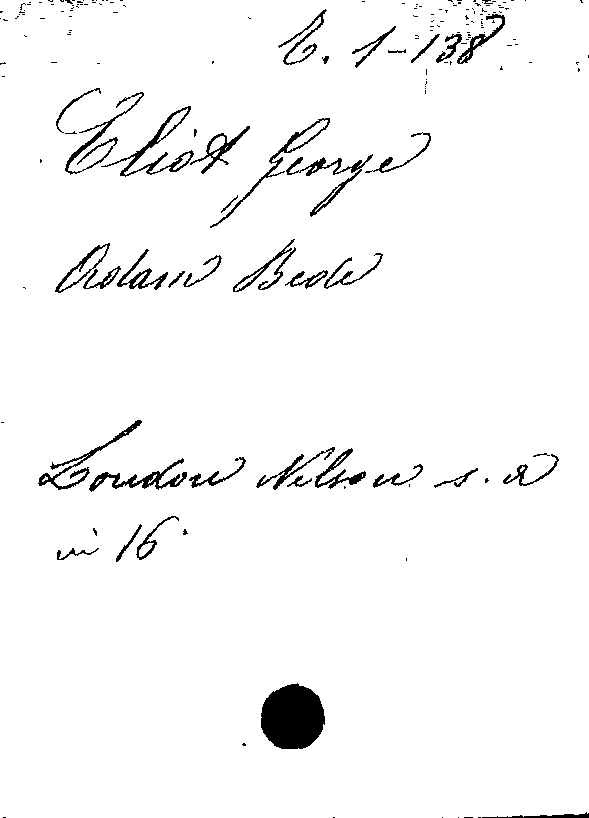 E. 1-138
Eliot George
Adam Bede
London Nelson s. a
in 16°